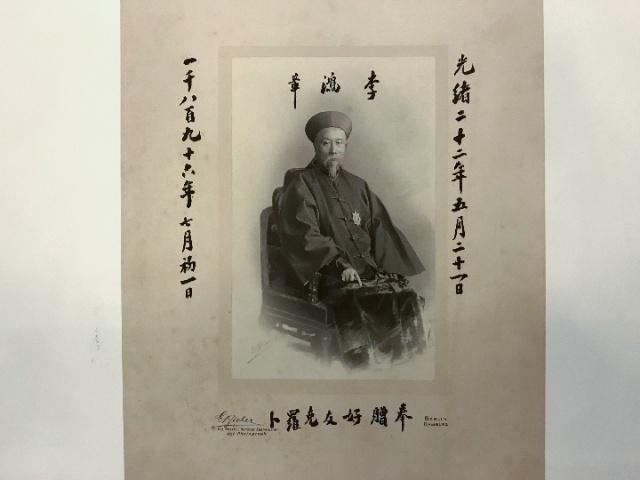 李鴻章
光緒二十二年五月二十一日
一千八百九十六年七月初一日
奉贈好友克羅卜
E. Bieber
Hof-Photograph
BERLIN
HAMBURG